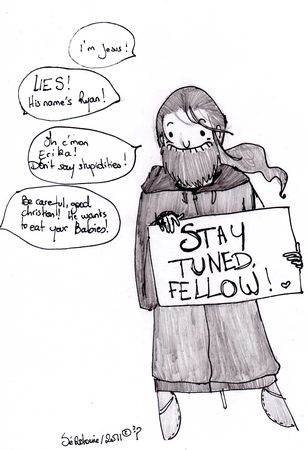 I'm Jesus!
LIES!
His name's Ryan!
Oh c'mon
Erika!
Don't say stupidities!
Be careful, good
christian! He wants
to eat your Babies!
STAY
TUNED,
FELLOW!
/2011©